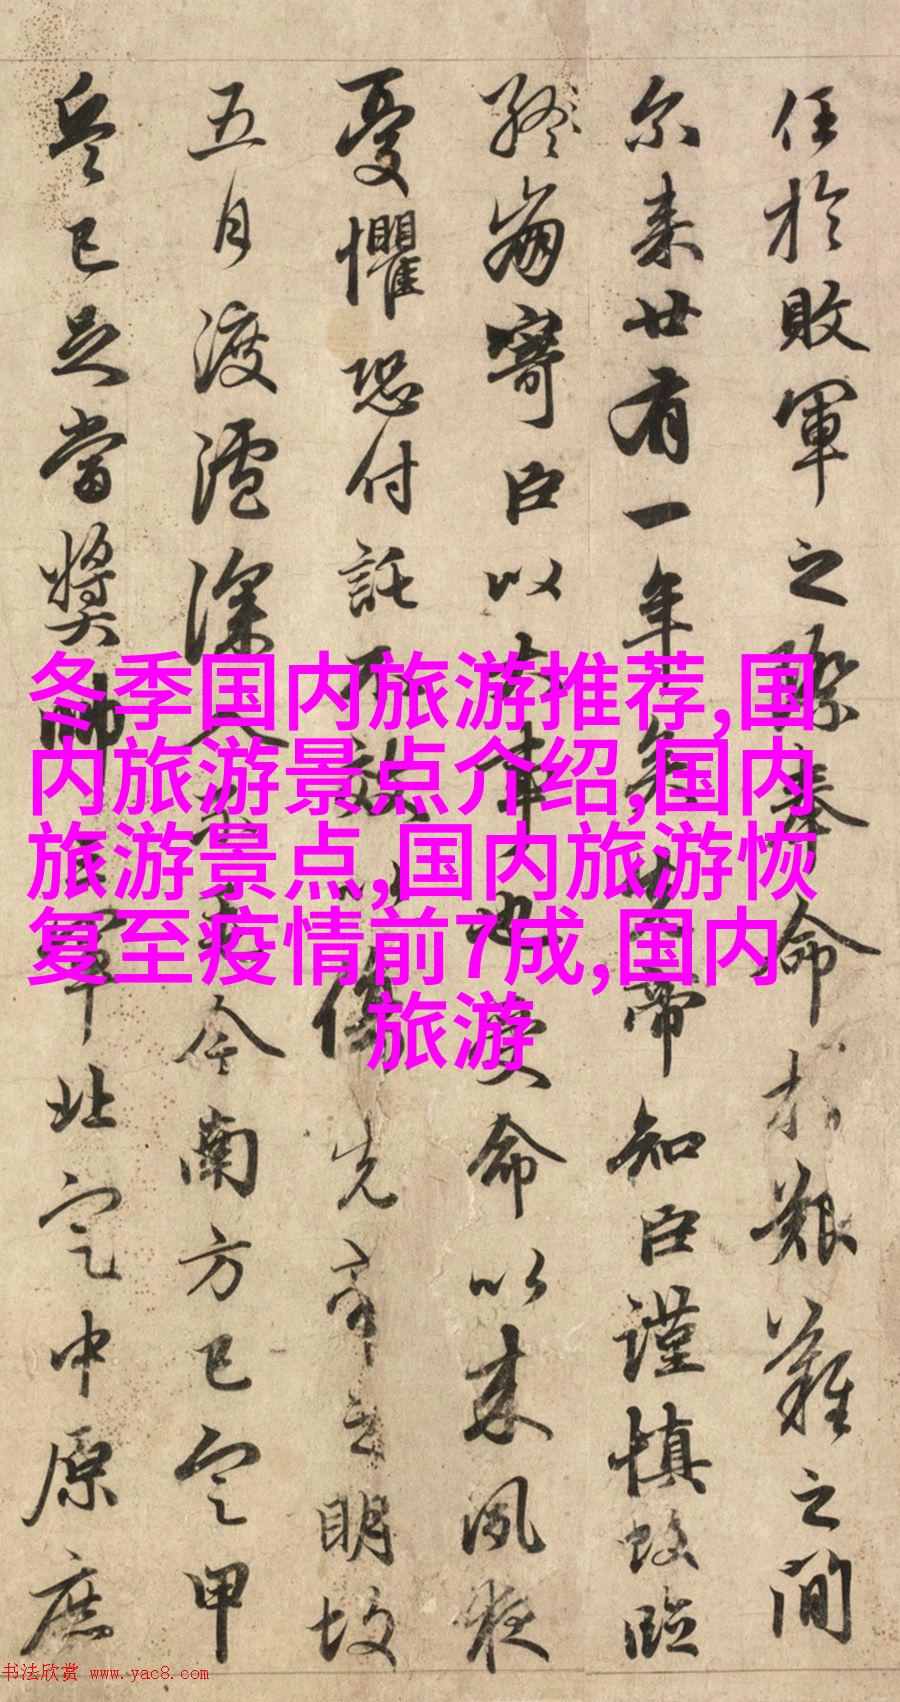 任於敗軍之際奉命於艱難之間
尔来廿有一年矣先帝知臣謹慎故臨
終崩寄臣以大事也受命以来夙夜
憂懼恐付託不效以傷先帝之明故
五月渡瀘深入不毛今南方已定甲
兵已足當獎帥三軍北定中原庶
冬季国内旅游推荐,国
内旅游景点介绍,国内
旅游景点,国内旅游恢
复至疫情前7成,国内
旅游
书法欣赏 www.yac8.com